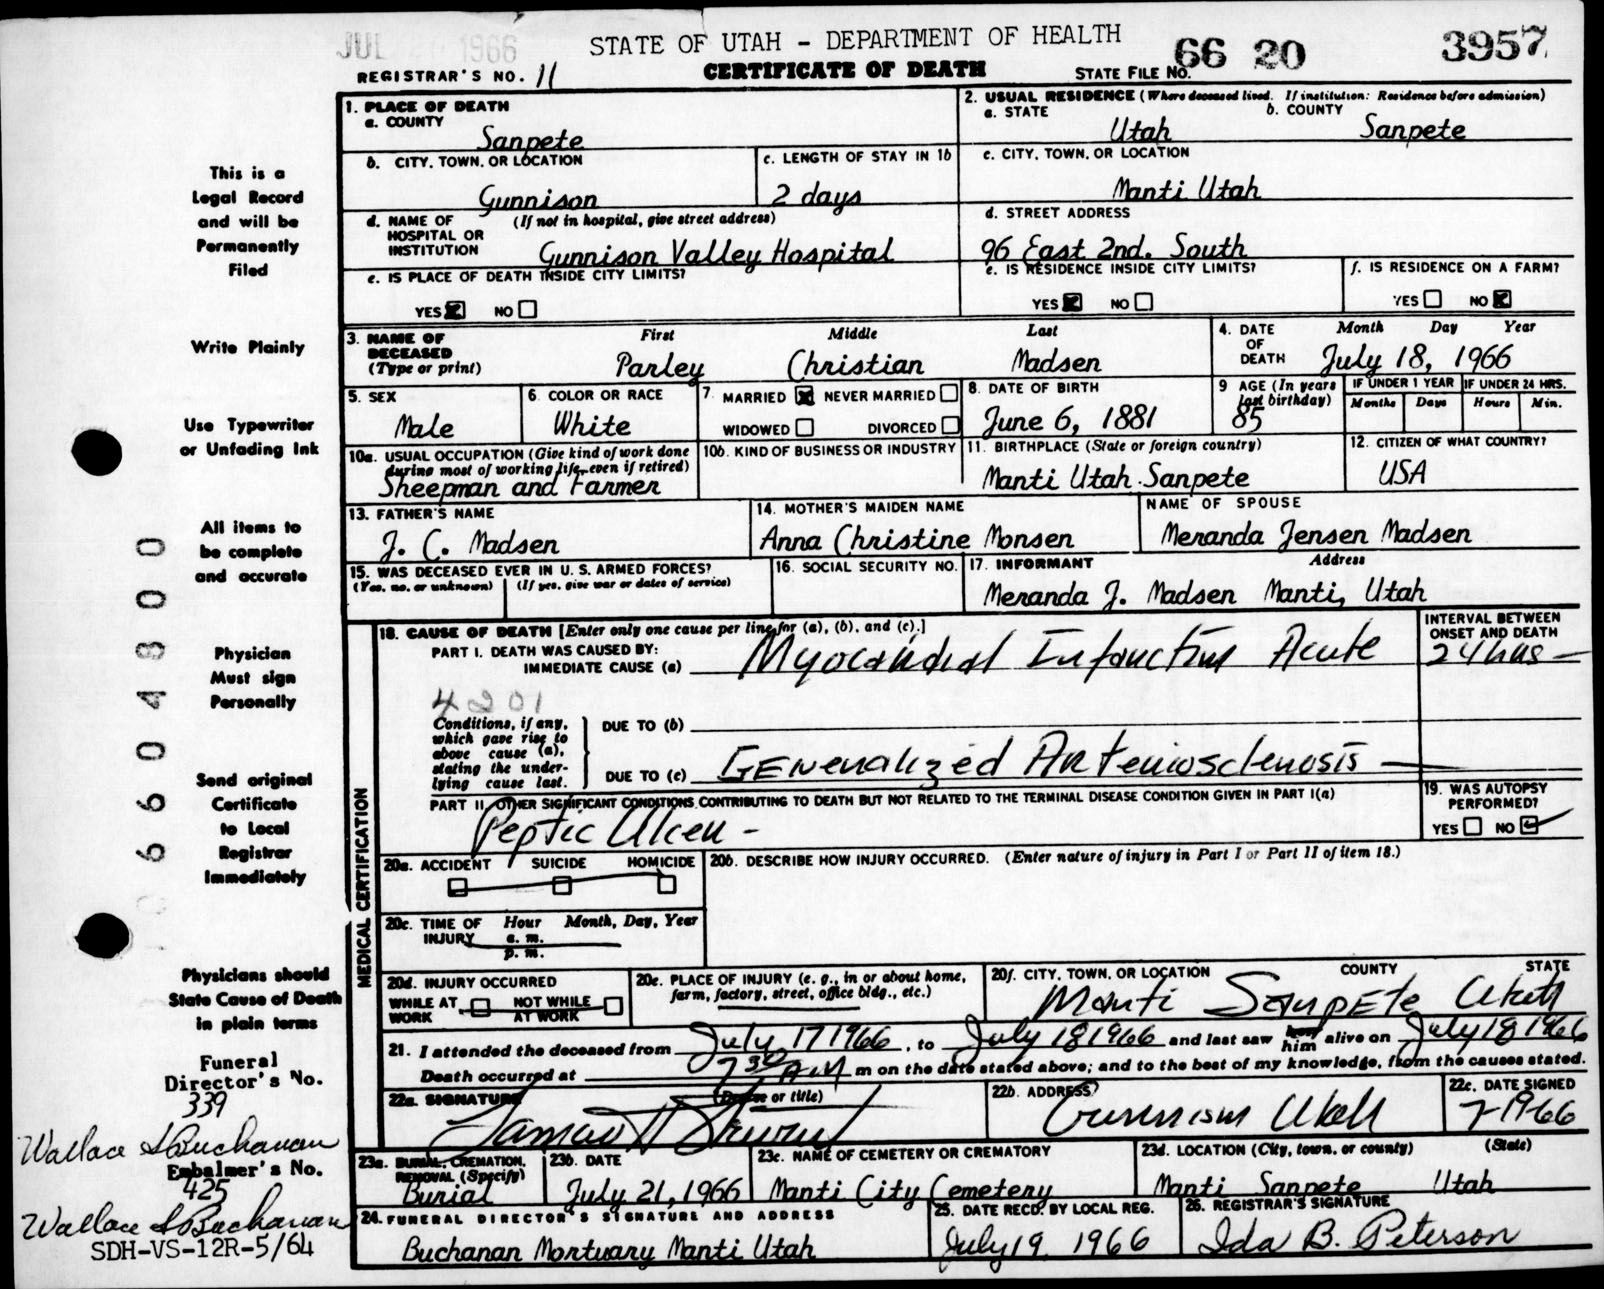 JUL 1966
STATE OF UTAH - DEPARTMENT OF HEALTH
66 20 3957
REGISTRAR'S NO. 11 CERTIFICATE OF DEATH STATE FILE NO.
1. PLACE OF DEATH
a. COUNTY
Sanpete
2. USUAL RESIDENCE (Where deceased lived. If institution: Residence before admission)
a. STATE b. COUNTY
Utah Sanpete
b. CITY, TOWN, OR LOCATION
Gunnison
c. LENGTH OF STAY IN 1b
2 days
c. CITY, TOWN, OR LOCATION
Manti Utah
d. NAME OF (If not in hospital, give street address)
HOSPITAL OR
INSTITUTION Gunnison Valley Hospital
d. STREET ADDRESS
96 East 2nd. South
e. IS PLACE OF DEATH INSIDE CITY LIMITS?
YES NO
e. IS RESIDENCE INSIDE CITY LIMITS?
YES NO
f. IS RESIDENCE ON A FARM?
YES NO
3. NAME OF First Middle Last
DECEASED
(Type or print) Parley Christian Madsen
4. DATE Month Day Year
OF
DEATH July 18, 1966
5. SEX
Male
6. COLOR OR RACE
White
7. MARRIED NEVER MARRIED
WIDOWED DIVORCED
8. DATE OF BIRTH
June 6, 1881
9 AGE (In years
last birthday)
85
IF UNDER 1 YEAR IF UNDER 24 HRS.
Months Days Hours Min.
10a. USUAL OCCUPATION (Give kind of work done
during most of working life, even if retired)
Sheepman and Farmer
10b. KIND OF BUSINESS OR INDUSTRY
11. BIRTHPLACE (State or foreign country)
Manti Utah Sanpete
12. CITIZEN OF WHAT COUNTRY?
USA
13. FATHER'S NAME
J. C. Madsen
14. MOTHER'S MAIDEN NAME
Anna Christine Monsen
NAME OF SPOUSE
Meranda Jensen Madsen
15. WAS DECEASED EVER IN U. S. ARMED FORCES?
(Yes, no, or unknown) (If yes, give war or dates of service)
16. SOCIAL SECURITY NO.
17. INFORMANT Address
Meranda J. Madsen Manti, Utah
MEDICAL CERTIFICATION
18. CAUSE OF DEATH [Enter only one cause per line for (a), (b), and (c).]
PART I. DEATH WAS CAUSED BY:
IMMEDIATE CAUSE (a) Myocardial Infarction Acute
INTERVAL BETWEEN
ONSET AND DEATH
24 hrs —
4201
Conditions, if any,
which gave rise to
above cause (a),
stating the under-
lying cause last.
DUE TO (b)
DUE TO (c) Generalized Arteriosclerosis
PART II. OTHER SIGNIFICANT CONDITIONS CONTRIBUTING TO DEATH BUT NOT RELATED TO THE TERMINAL DISEASE CONDITION GIVEN IN PART I(a)
Peptic Ulcer -
19. WAS AUTOPSY
PERFORMED?
YES NO
20a. ACCIDENT SUICIDE HOMICIDE
20b. DESCRIBE HOW INJURY OCCURRED. (Enter nature of injury in Part I or Part II of item 18.)
20c. TIME OF Hour Month, Day, Year
INJURY a. m.
p. m.
20d. INJURY OCCURRED
WHILE AT NOT WHILE
WORK AT WORK
20e. PLACE OF INJURY (e. g., in or about home,
farm, factory, street, office bldg., etc.)
20f. CITY, TOWN, OR LOCATION COUNTY STATE
Manti Sanpete Utah
21. I attended the deceased from July 17 1966, to July 18 1966 and last saw her him alive on July 18 1966
Death occurred at 7 30 AM m on the date stated above; and to the best of my knowledge, from the causes stated.
22a. SIGNATURE (Degree or title)
22b. ADDRESS
Gunnison Utah
22c. DATE SIGNED
7-19-66
23a. BURIAL, CREMATION,
REMOVAL (Specify)
Burial
23b. DATE
July 21, 1966
23c. NAME OF CEMETERY OR CREMATORY
Manti City Cemetery
23d. LOCATION (City, town, or county) (State)
Manti Sanpete Utah
24. FUNERAL DIRECTOR'S SIGNATURE AND ADDRESS
Buchanan Mortuary Manti Utah
25. DATE RECD. BY LOCAL REG.
July 19 1966
26. REGISTRAR'S SIGNATURE
Ida B. Peterson
This is a
Legal Record
and will be
Permanently
Filed
Write Plainly
Use Typewriter
or Unfading Ink
All items to
be complete
and accurate
Physician
Must sign
Personally
Send original
Certificate
to Local
Registrar
Immediately
Physicians should
State Cause of Death
in plain terms
Funeral
Director's No.
339
Wallace S Buchanan
Embalmer's No.
425
Wallace S Buchanan
SDH-VS-12R-5/64
660004800